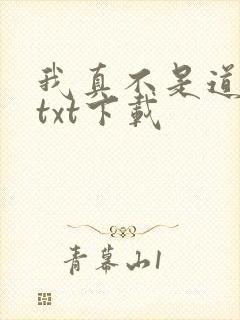 我真不是道
txt下載
青幕山1